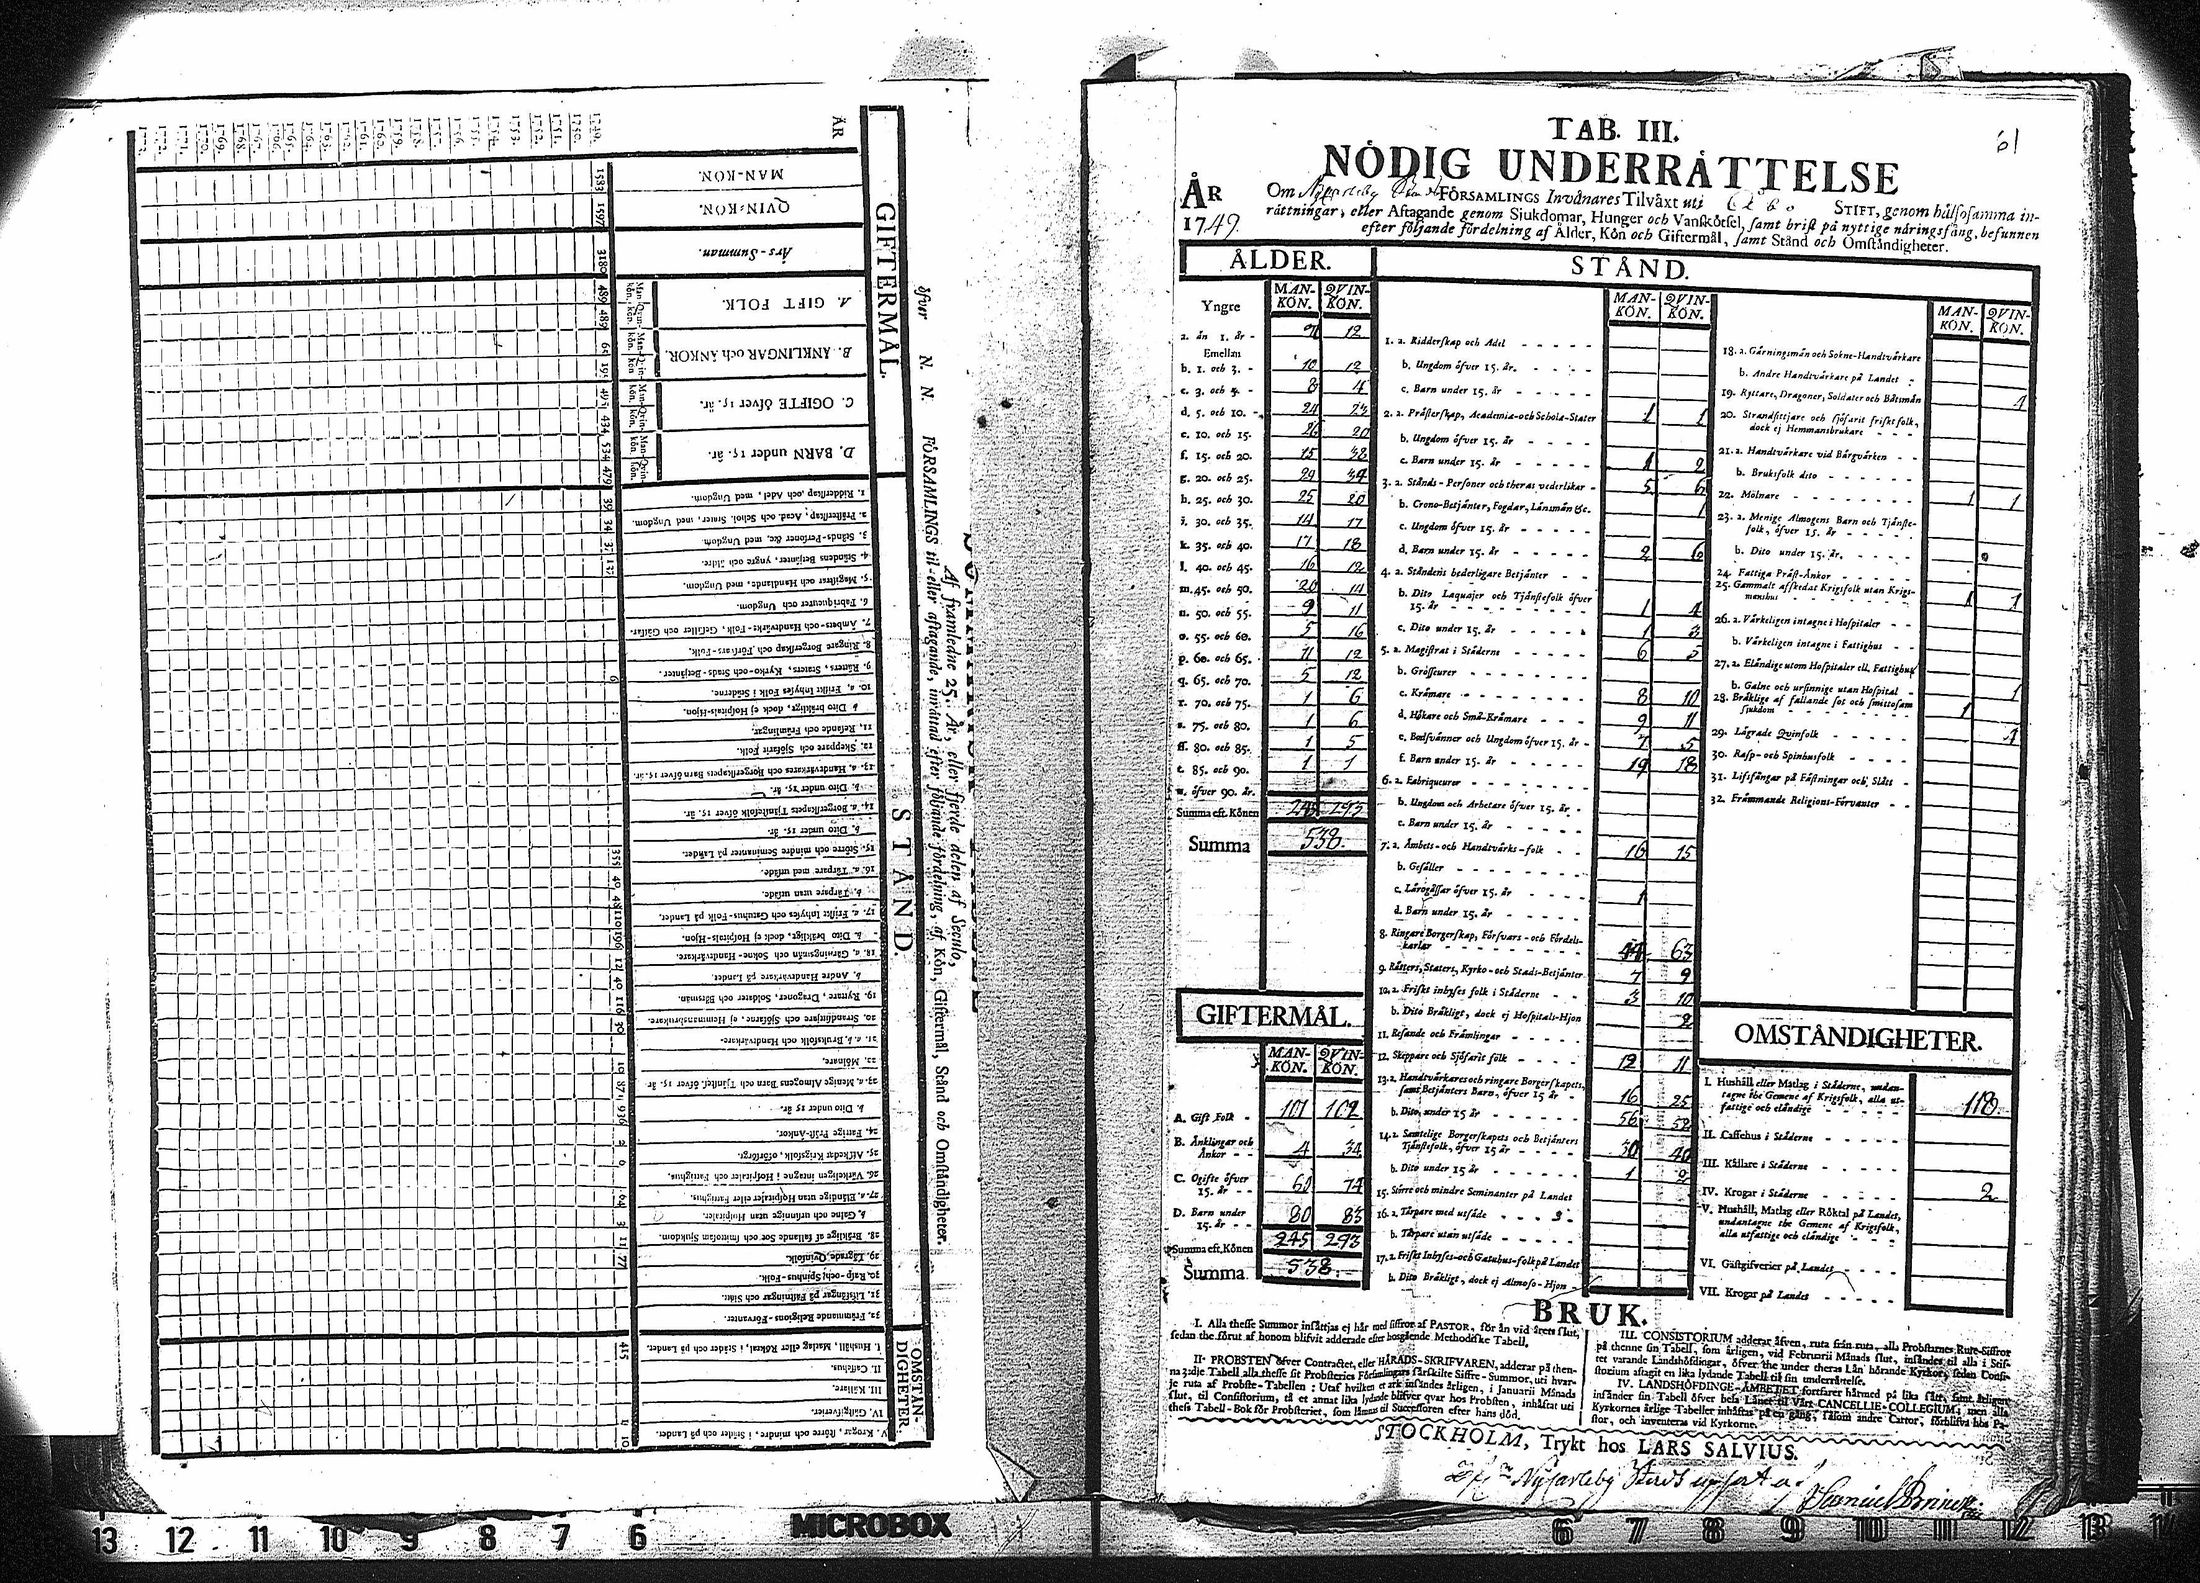 61
TAB. III.
NÖDIG UNDERRÄTTELSE
ÅR 1749.
Om Nycarleby Stads FÖRSAMLINGS Invånares Tilväxt uti Åbo STIFT, genom hälsosamma in-
rättningar, eller Aftagande genom Sjukdomar, Hunger och Vanskötsel, samt brist på nyttige näringsfång, befunnen
efter följande fördelning af Ålder, Kön och Giftermål, samt Stånd och Omständigheter.
ÅLDER.
MAN-KÖN. QVIN-KÖN.
Yngre
a. än 1. år - 12
Emellan
b. 1. och 3. - 10 12
c. 3. och 5. - 8 4
d. 5. och 10. - 24 23
e. 10. och 15. 26 20
f. 15. och 20. 15 38
g. 20. och 25. 29 34
h. 25. och 30. 25 20
i. 30. och 35. 14 17
k. 35. och 40. 17 18
l. 40. och 45. 16 12
m. 45. och 50. 20 14
n. 50. och 55. 9 11
o. 55. och 60. 5 16
p. 60. och 65. 11 12
q. 65. och 70. 5 12
r. 70. och 75. 1 6
s. 75. och 80. 1 6
ff. 80. och 85. 1 5
t. 85. och 90. 1 1
u. öfver 90. år.
Summa eft. Könen 245 293
Summa 538.
GIFTERMÅL.
MAN-KÖN. QVIN-KÖN.
A. Gift Folk - 101 102
B. Änklingar och Änkor - - 4 34
C. Ogifte öfver 15. år - - 60 74
D. Barn under 15. år - - 80 83
Summa eft. Könen 245 293
Summa. 538.
STÅND.
MAN-KÖN. QVIN-KÖN.
1. a. Ridderskap och Adel
b. Ungdom öfver 15. år.
c. Barn under 15. år
2. a. Prästerskap, Academia-och Schola-Stater 1 1
b. Ungdom öfver 15. år
c. Barn under 15. år 1 2
3. a. Stånds-Personer och theras vederlikar - 5 6
b. Crono-Betjänter, Fogdar, Länsmän &c. 1
c. Ungdom öfver 15. år
d. Barn under 15. år 2 6
4. a. Ståndens hederligare Betjänter
b. Dito Laquajer och Tjänstefolk öfver 15. år 1 4
c. Dito under 15. år 1 3
5. a. Magistrat i Städerne 6 5
b. Grossieurer
c. Krämare 8 10
d. Hökare och Små-Krämare 9 11
e. Bodsvänner och Ungdom öfver 15. år - 7 5
f. Barn under 15. år 19 18
6. a. Fabriqueurer
b. Ungdom och Arbetare öfver 15. år -
c. Barn under 15. år
7. a. Ämbets-och Handtvärks-folk 16 15
b. Gesäller
c. Lärogåssar öfver 15. år 1
d. Barn under 15. år
8. Ringare Borgerskap, Försvars-och Fördels-karlar 44 63
9. Rätters, Staters, Kyrko-och Stads-Betjänter 7 9
10. a. Friskt inhyses folk i Städerne 3 10
b. Dito Bräkligt, dock ej Hospitals-Hjon 2
11. Resande och Främlingar
12. Skeppare och Sjöfarit folk 12 11
13. a. Handtvärkares och ringare Borgerskapets, samt Betjänters Barn, öfver 15. år 16 25
b. Dito, under 15 år 56 52
14. a. Samtelige Borgerskapets och Betjänters Tjänstefolk, öfver 15. år 30 40
b. Dito under 15 år 1 2
15. Större och mindre Seminanter på Landet
16. a. Torpare med utsäde
b. Torpare utan utsäde
17. a. Friskt Inhyses-och Gatuhus-folk på Landet
b. Dito Bräkligt, dock ej Almoso-Hjon
MAN-KÖN. QVIN-KÖN.
18. a. Gärningsmän och Sokne-Handtvärkare
b. Andre Handtvärkare på Landet
19. Ryttare, Dragoner, Soldater och Båtsmän 1
20. Strandsittjare och sjöfarit friskt folk, dock ej Hemmansbrukare
21. a. Handtvärkare vid Bärgvärken
b. Bruksfolk dito
22. Mölnare 1 1
23. a. Menige Almogens Barn och Tjänste-folk, öfver 15. år
b. Dito under 15. år.
24. Fattiga Präst-Änkor
25. Gammalt afskedat Krigsfolk utan Krigsmanshus 1 1
26. a. Värkeligen intagne i Hospitaler
b. Värkeligen intagne i Fattighus
27. a. Eländige utom Hospitaler ell. Fattighus
b. Galne och ursinnige utan Hospital - 1
28. Bräklige af fallande sot och smittosam sjukdom 1
29. Lägrade Qvinfolk 1
30. Rasp-och Spinhusfolk
31. Lifsfångar på Fästningar och Slått
32. Främmande Religions-Förvanter
OMSTÄNDIGHETER.
I. Hushåll eller Matlag i Städerne, undantagne the Gemene af Krigsfolk, alla utfattige och eländige 118
II. Caffehus i Städerne
III. Källare i Städerne
IV. Krogar i Städerne 2
V. Hushåll, Matlag eller Röktal på Landet, undantagne the Gemene af Krigsfolk, alla utfattige och eländige
VI. Gästgifverier på Landet
VII. Krogar på Landet
BRUK.
I. Alla thesse Summor insättjas ej här med siffror af PASTOR, för än vid årets slut,
sedan the förut af honom blifvit adderade efter hosgående Methodiske Tabell.
II. PROBSTEN öfver Contractet, eller HÄRADS-SKRIFVAREN, adderar på then-
na 3:dje Tabell alla thesse sit Probsteries Församlingars särskilte Siffre-Summor, uti hvar-
je ruta af Probste-Tabellen: Utaf hvilken et ark insändes årligen, i Januarii Månads
slut, til Consistorium, tå et annat lika lydande blifver qvar hos Probsten, inhäftat uti
thess Tabell-Bok för Probsteriet, som lämnas til Successoren efter hans död.
III. CONSISTORIUM adderar äfven, ruta från ruta, alla Probstarnes Rute-Siffror
på thenne sin Tabell, som årligen, vid Februarii Månads slut, insändes til alla i Stif-
tet varande Landshöfdingar, öfver the under theras Län hörande Kyrkor, sedan Consi-
storium aftagit en lika lydande Tabell til sin underrättelse.
IV. LANDSHÖFDINGE-ÄMBETET fortfarer härmed på lika sätt, samt årligen
insänder sin Tabell öfver hela Länet til Vårt CANCELLIE-COLLEGIUM, men alla
Kyrkornes årlige Tabeller inhäftas på en gång, såsom andre Cartor, förblifva hos Pa-
stor, och inventeras vid Kyrkorne.
STOCKHOLM, Trykt hos LARS SALVIUS.
Nycarleby Stads
GIFTERMÅL.
STÅND.
OMSTÄNDIGHETER.
öfver N. N. FÖRSAMLINGS til-eller aftagande, inrättad efter följande fördelning, af Kön, Giftermål, Stånd och Omständigheter.
Af framledne 25. År, eller fjerde delen af Seculo,
ÅR 1749. 1750. 1751. 1752. 1753.
MAN-KÖN. 1583
QVIN-KÖN. 1597
Års-Summan. 3180
A. GIFT FOLK. Man-kön. Qvin-kön. 489 489
B. ÄNKLINGAR och ÄNKOR. Man-kön. Qvin-kön.
C. OGIFTE öfver 15. år. Man-kön. Qvin-kön.
D. BARN under 15. år. Man-kön. Qvin-kön. 534 479
1. Ridderskap och Adel, med Ungdom. 39
2. Prästerskap, Acad. och Schol. Stater, med Ungdom. 34
3. Stånds-Personer &c. med Ungdom.
4. Ståndens Betjänter, yngre och äldre.
5. Magistrat och Handlande, med Ungdom.
6. Fabriqueurer och Ungdom.
7. Ämbets-och Handtvärks-Folk, Gesäller och Gåssar.
8. Ringare Borgerskap och Försvars-Folk.
9. Rätters, Staters, Kyrko-och Stads-Betjänter.
10. a. Friskt Inhyses Folk i Städerne.
b. Dito bräkligt, dock ej Hospitals-Hjon.
11. Resande och Främlingar.
12. Skeppare och Sjöfarit Folk.
13. a. Handtvärkares och Borgerskapets Barn öfver 15. år.
b. Dito under 15. år.
14. a. Borgerskapets Tjänstefolk öfver 15. år.
b. Dito under 15. år.
15. Större och mindre Seminanter på Landet. 353
16. a. Torpare med utsäde. 40
b. Torpare utan utsäde.
17. a. Friskt Inhyses och Gatuhus-Folk på Landet.
b. Dito bräkligt, dock ej Hospitals-Hjon.
18. a. Gärningsmän och Sokne-Handtvärkare. 12
b. Andre Handtvärkare på Landet. 40
19. Ryttare, Dragoner, Soldater och Båtsmän. 116
20. Strandsittjare och Sjöfarne, ej Hemmansbrukare.
21. a. b. Bruksfolk och Handtvärkare.
22. Mölnare. 10
23. a. Menige Almogens Barn och Tjänstef. öfver 15. år.
b. Dito under 15 år.
24. Fattige Präst-Änkor.
25. Afskedat Krigsfolk, oförsörgt.
26. Värkeligen intagne i Hospitaler och Fattighus.
27. a. Eländige utan Hospitaler eller Fattighus.
b. Galne och ursinnige utan Hospitaler.
28. Bräklige af fallande Sot och smittosam Sjukdom. 11
29. Lägrade Qvinfolk. 77
30. Rasp-och Spinhus-Folk.
31. Lifsfångar på Fästningar och Slått.
32. Främmande Religions-Förvanter.
I. Hushåll, Matlag eller Röktal, i Städer och på Landet. 415
II. Caffehus.
III. Källare.
IV. Gästgifverier.
V. Krogar, större och mindre, i Städer och på Landet. 10
MICROBOX
13 12 11 10 9 8 7 6
6 7 8 9 10 11 12 13 14